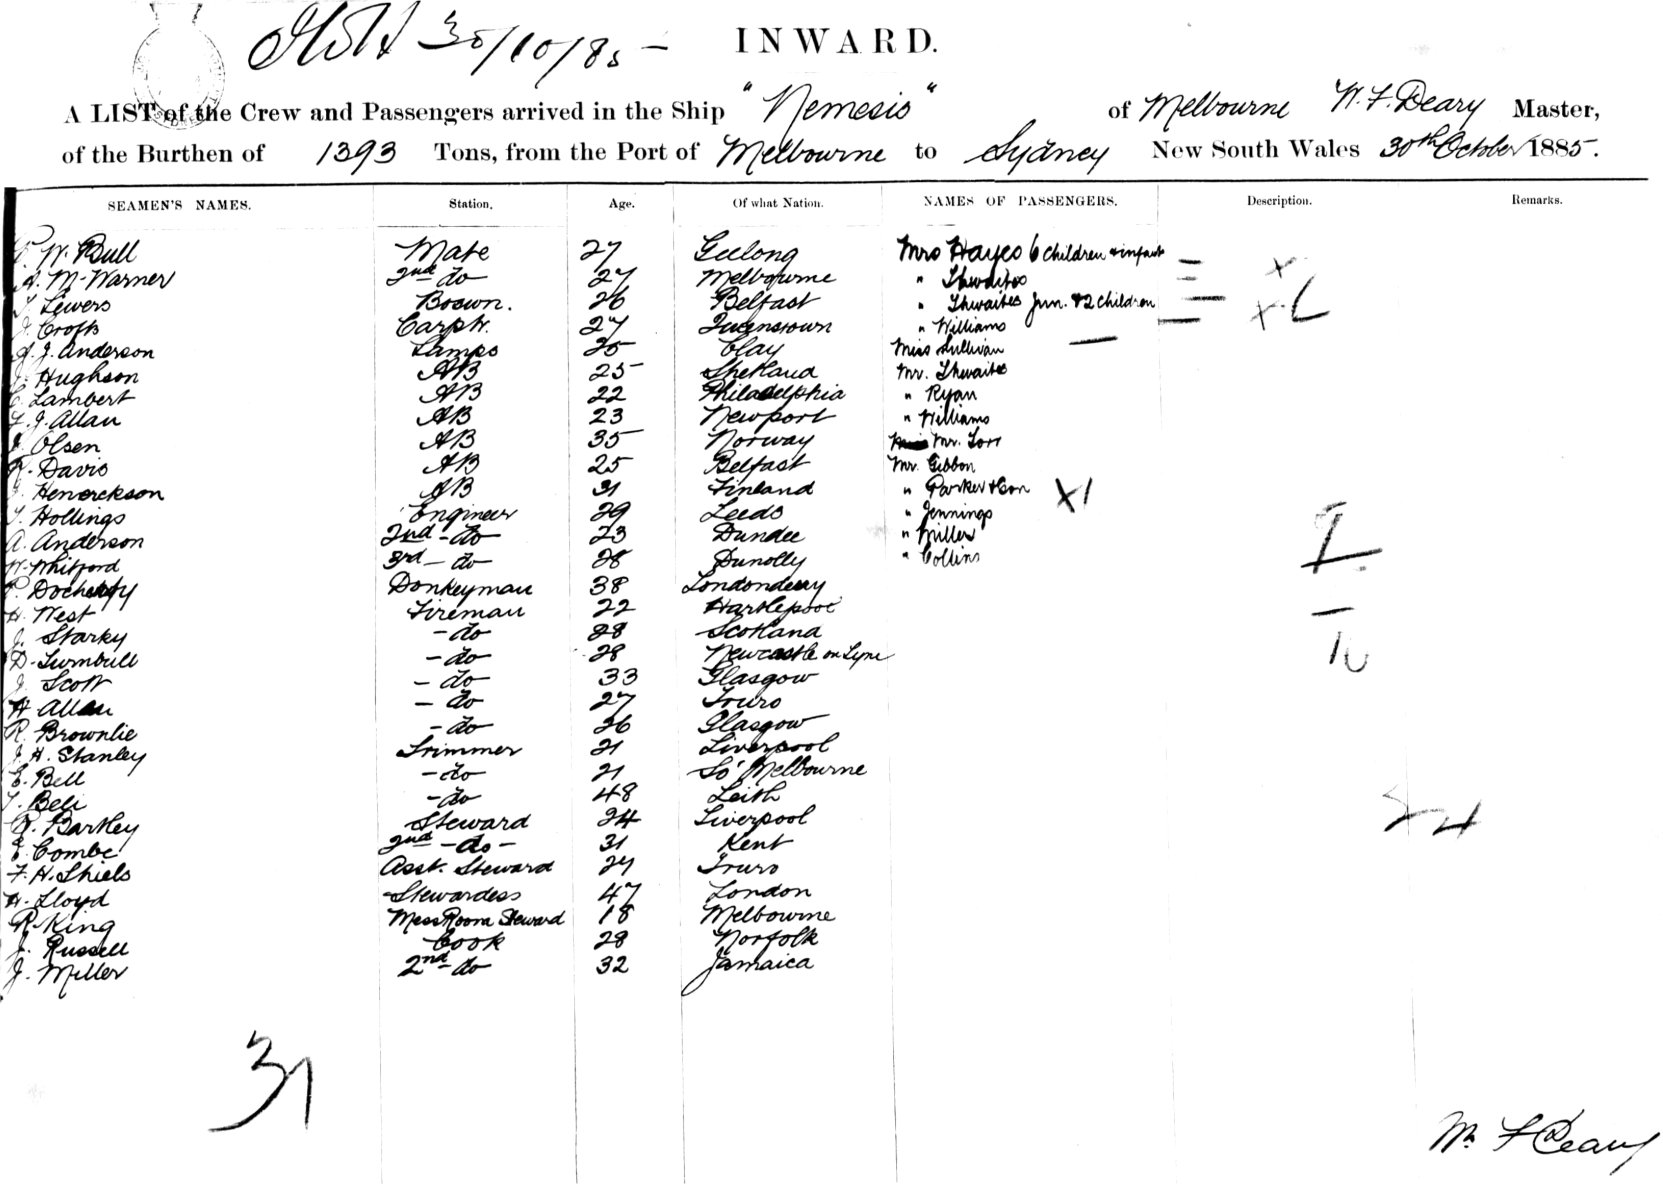 30/10/85 -
INWARD.
A LIST of the Crew and Passengers arrived in the Ship "Nemesis" of Melbourne W. F. Deary Master,
of the Burthen of 1393 Tons, from the Port of Melbourne to Sydney New South Wales 30th October 1885.
SEAMEN'S NAMES. Station. Age. Of what Nation. NAMES OF PASSENGERS. Description. Remarks.
W. Bull Mate 27 Geelong Mrs Hayes 6 children & infant
M. Warner 2nd do 27 Melbourne " Thwaites
Lewers Boswn. 26 Belfast " Thwaites Jun. & 2 children
J. Crofts Carptr. 27 Queenstown " Williams
J. Anderson Lamps 25 Clay Miss Sullivan
Hughson AB 25 Shetland Mr. Thwaites
C. Lambert AB 22 Philadelphia " Ryan
J. Allan AB 23 Newport " Williams
J. Olsen AB 35 Norway Mr.
R. Davis AB 25 Belfast Mr. Gibbon
J. Henerckson AB 31 Finland " Parker & Son X1
T. Hollings Engineer 29 Leeds " Jennings
A. Anderson 2nd - do 23 Dundee " Miller
W. Whitford 3rd - do 28 Dunolly " Collins
P. Docherty Donkeyman 38 Londonderry
H. West Fireman 22 Hartlepool
J. Starky - do 28 Scotland
D. Turnbull - do 28 Newcastle on Tyne
J. Scott - do 33 Glasgow
H. Allan - do 27 Truro
R. Brownlie - do 26 Glasgow
J. H. Stanley Trimmer 21 Liverpool
E. Bell - do 21 So' Melbourne
T. Bell - do 48 Leith
R. Bartley Steward 24 Liverpool
E. Combe 2nd - do - 31 Kent
F. H. Shiels Asst. Steward 27 Truro
H. Lloyd Stewardess 47 London
R. King Mess Room Steward 18 Melbourne
J. Russell Cook 28 Norfolk
J. Miller 2nd - do 32 Jamaica
9
10
24
31
W. F. Deary